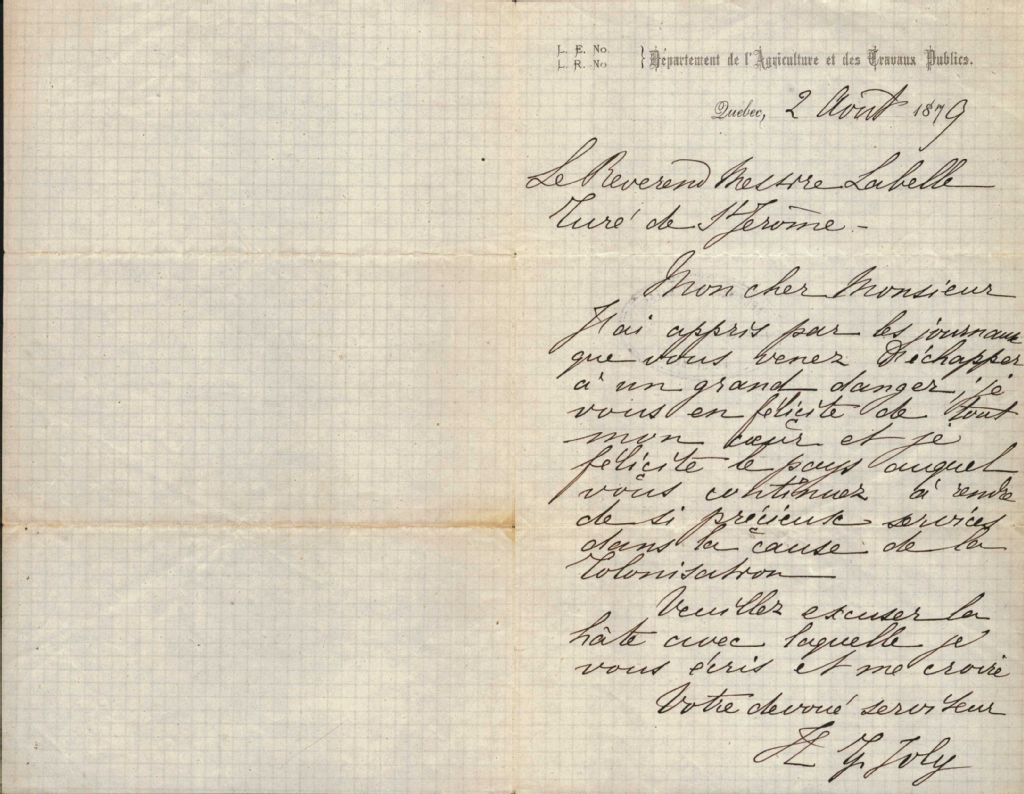 L. E. No.
L. R. No
} Département de l'Agriculture et des Travaux Publics.
Quebec, 2 Août 1879
Le Reverend Messire Labelle
Curé de St Jerôme -
Mon cher Monsieur
J'ai appris par les journaux
que vous venez d'échapper
à un grand danger; je
vous en félicite de tout
mon cœur et je
félicite le pays auquel
vous continuez à rendre
de si précieux services
dans la cause de la
Colonisation
Veuillez excuser la
hâte avec laquelle je
vous écris et me croire
Votre devoué serviteur
H G Joly